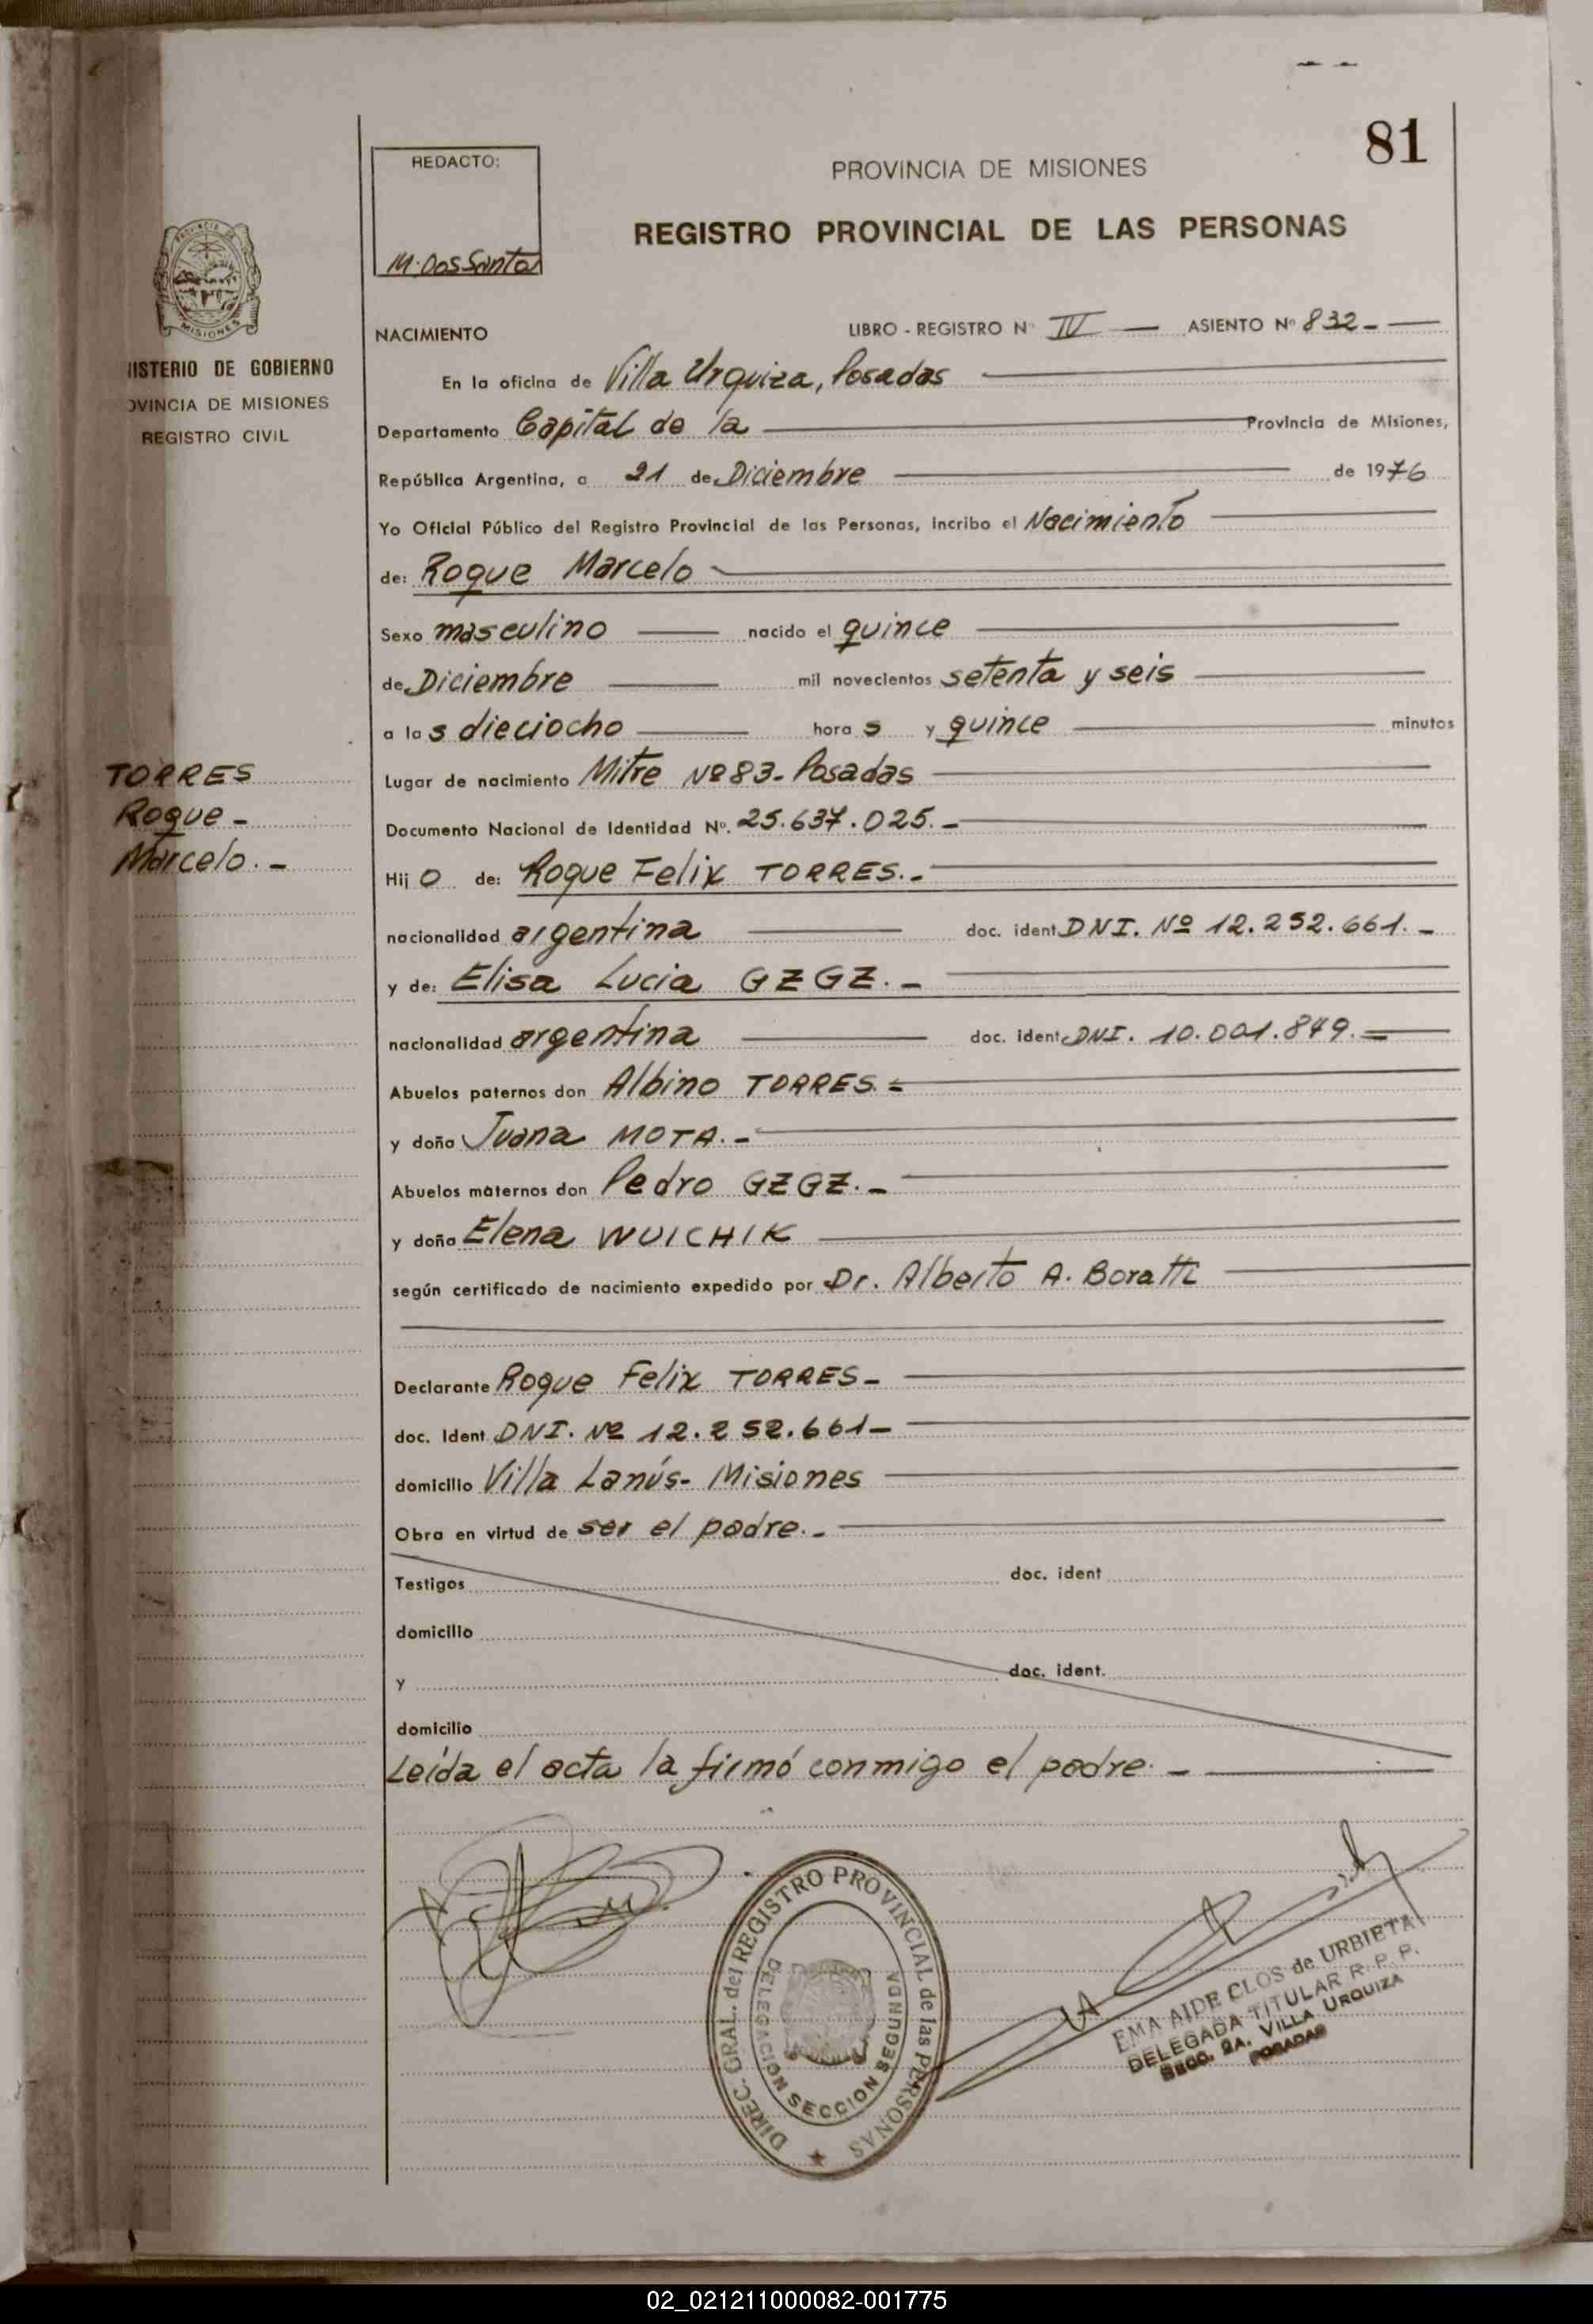 81
REDACTO:
M. Dos Santos
PROVINCIA DE MISIONES
REGISTRO PROVINCIAL DE LAS PERSONAS
PROVINCIA DE
MISIONES
NISTERIO DE GOBIERNO
OVINCIA DE MISIONES
REGISTRO CIVIL
NACIMIENTO LIBRO - REGISTRO Nº IV ASIENTO Nº 832-
En la oficina de Villa Urquiza, Posadas
Departamento Capital de la Provincia de Misiones,
República Argentina, a 21 de Diciembre de 1976
Yo Oficial Público del Registro Provincial de las Personas, incribo el Nacimiento
de: Roque Marcelo
Sexo masculino nacido el quince
de Diciembre mil novecientos setenta y seis
a las dieciocho horas y quince minutos
TORRES
Roque -
Marcelo. -
Lugar de nacimiento Mitre Nº 83- Posadas
Documento Nacional de Identidad Nº. 25.637.025.-
Hijo de: Roque Felix TORRES.-
nacionalidad argentina doc. ident DNI. Nº 12.252.661.-
y de: Elisa Lucia GZGZ.-
nacionalidad argentina doc. ident DNI. 10.001.849.=
Abuelos paternos don Albino TORRES.=
y doña Juana MOTA.-
Abuelos maternos don Pedro GZGZ.-
y doña Elena WUICHIK
según certificado de nacimiento expedido por Dr. Alberto A. Boratti
Declarante Roque Felix TORRES-
doc. Ident DNI. Nº 12.252.661-
domicilio Villa Lanús- Misiones
Obra en virtud de ser el padre.-
Testigos doc. ident
domicilio
y doc. ident.
domicilio
Leída el acta la firmó conmigo el padre. -
DIREC. GRAL. del REGISTRO PROVINCIAL de las PERSONAS
DELEGACION SECCION SEGUNDA
EMA AIDE CLOS de URBIETA
DELEGADA TITULAR R. P. P.
SECC. 2A. VILLA URQUIZA
POSADAS
02_021211000082-001775